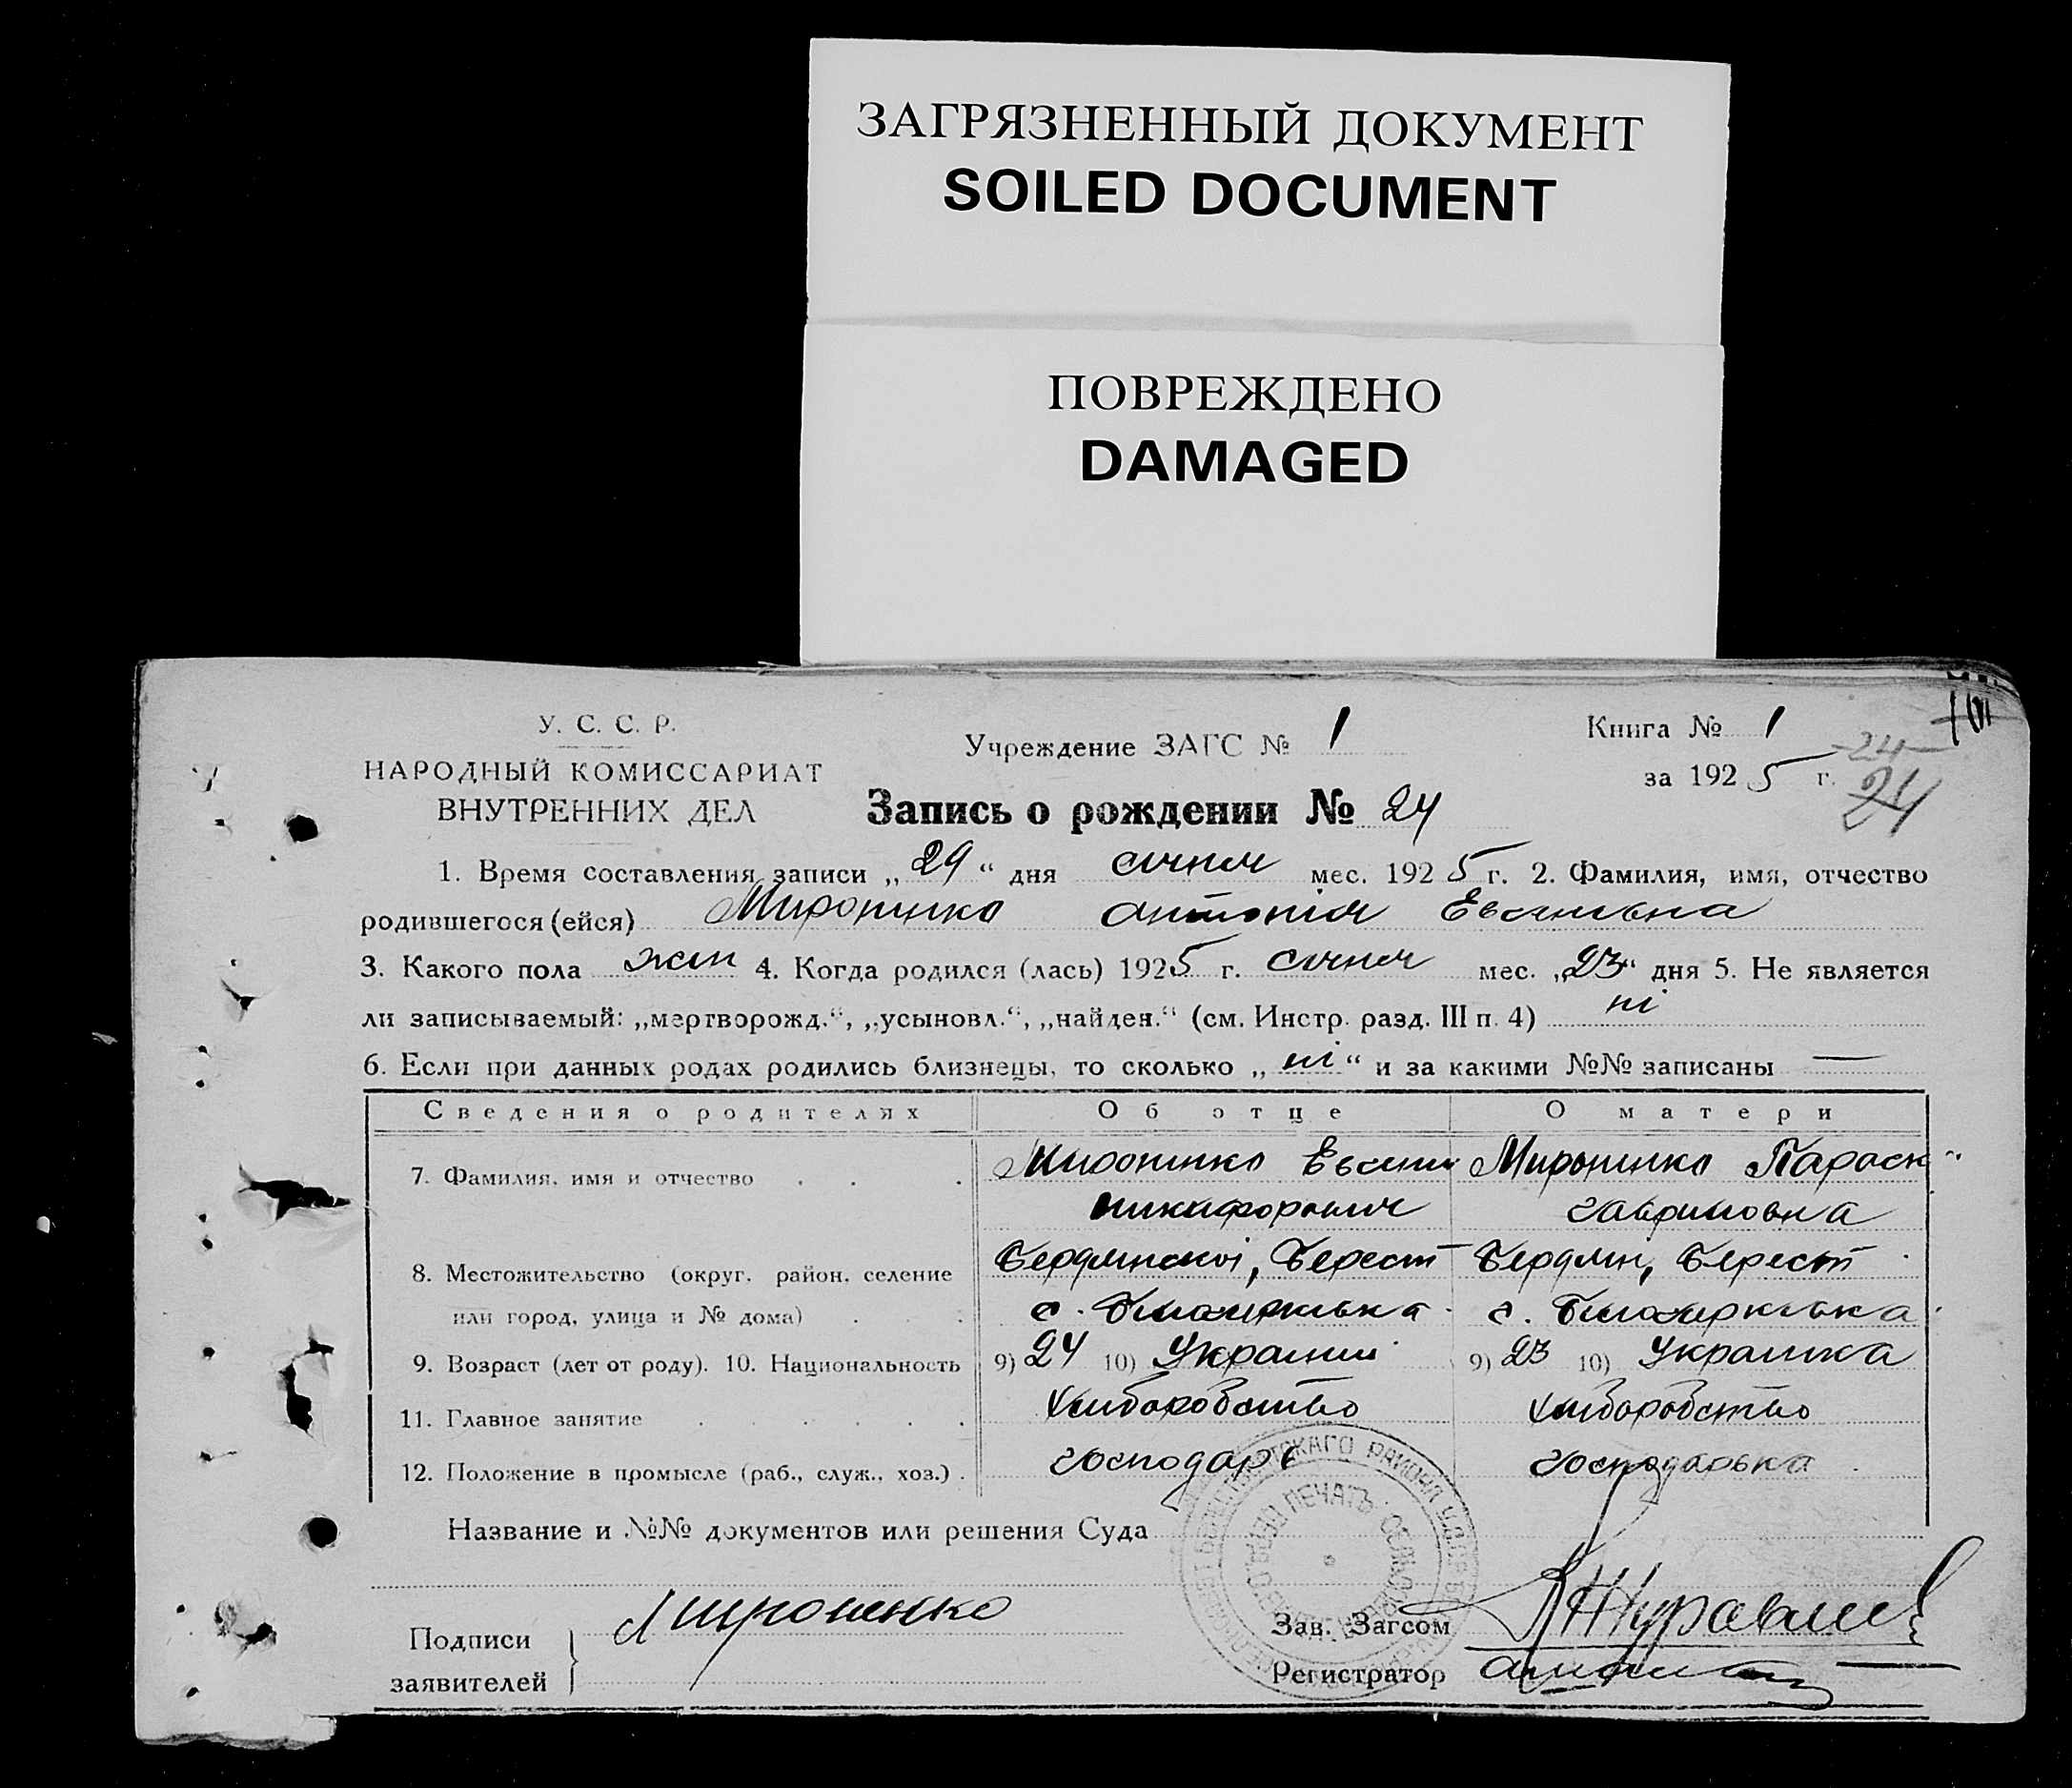 ЗАГРЯЗНЕННЫЙ ДОКУМЕНТ
SOILED DOCUMENT
ПОВРЕЖДЕНО
DAMAGED
У. С. С. Р.
НАРОДНЫЙ КОМИССАРИАТ
ВНУТРЕННИХ ДЕЛ
Учреждение ЗАГС № 1
Книга № 1
за 1925 г.
24
24
Запись о рождении № 24
1. Время составления записи „29“ дня січня мес. 1925 г. 2. Фамилия, имя, отчество
родившегося (ейся) Мироненко Антонія Евсиивна
3. Какого пола жен 4. Когда родился (лась) 1925 г. січня мес. „23“ дня 5. Не является
ли записываемый: „мертворожд.“, „усыновл.“, „найден.“ (см. Инстр. разд. III п. 4) ні
6. Если при данных родах родились близнецы, то сколько „ні“ и за какими №№ записаны —
Сведения о родителях Об отце О матери
7. Фамилия, имя и отчество Мироненко Мироненко Параск
Никифорович Гавриловна
8. Местожительство (округ, район, селение Бердянскоі, Берест Бердян, Берест
или город, улица и № дома) с. с.
9. Возраст (лет от роду). 10. Национальность 9) 24 10) Украинец 9) 23 10) Украинка
11. Главное занятие Хлиборобство Хлиборобство
12. Положение в промысле (раб., служ., хоз.) господарь господарька
Название и №№ документов или решения Суда
Подписи
заявителей
Мироненко
Зав. Загсом Журавлев
Регистратор